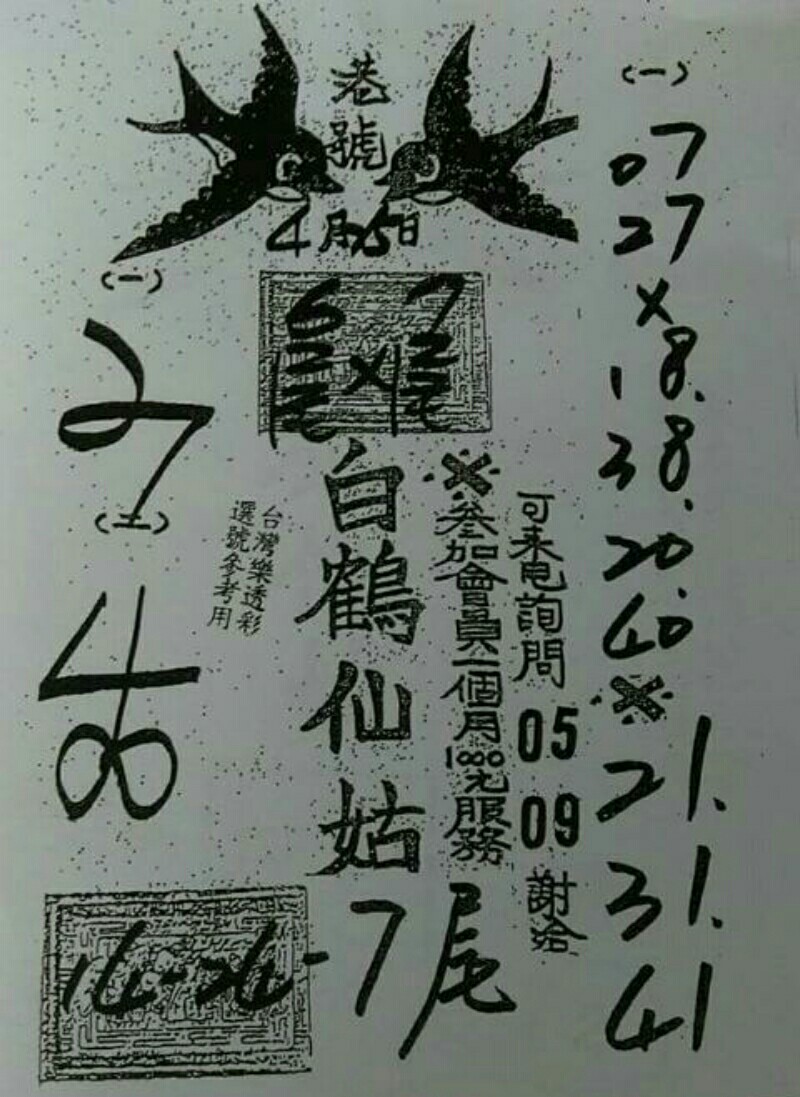 港號
4月25日
(一)
27
(二)
48
白鶴仙姑
台灣樂透彩
選號參考用
※參加會員一個月1000元服務
可来电詢問 05 09 謝洽
14-24-7尾
(一)
07
27
×
18.
38.
20.
40.
※
21.
31.
41